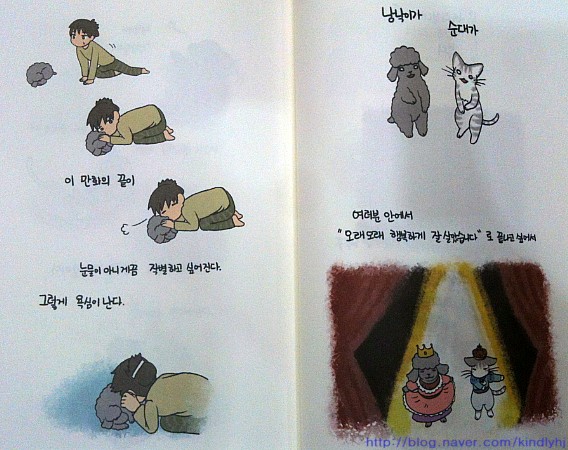 이 만화의 끝이
눈물이 아니게끔 각별하고 싶어진다.
그렇게 욕심이 난다.
낭낙이가
순대가
여러분 안에서
"오래오래 행복하게 잘 살았습니다"로 끝나고 싶어서
http://blog.naver.com/kindlyhj